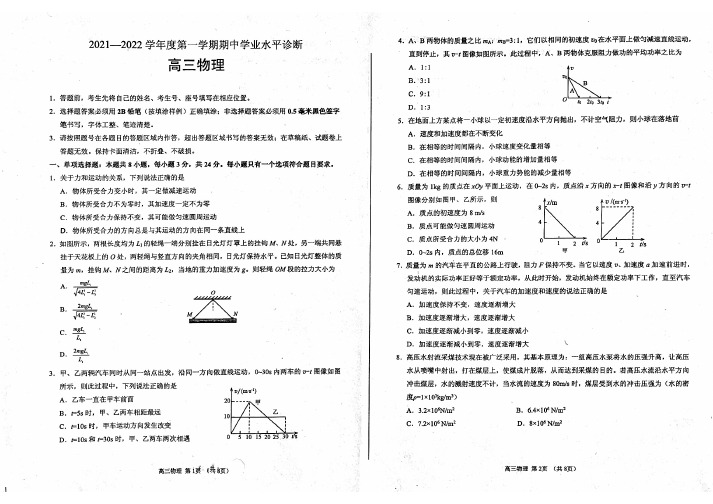 2021—2022 学年度第一学期期中学业水平诊断
高三物理
1．答题前，考生先将自己的姓名、考生号、座号填写在相应位置。
2．选择题答案必须用 2B 铅笔（按填涂样例）正确填涂；非选择题答案必须用 0.5 毫米黑色签字
笔书写，字体工整、笔迹清楚。
3．请按照题号在各题目的答题区域内作答，超出答题区域书写的答案无效；在草稿纸、试题卷上
答题无效。保持卡面清洁，不折叠、不破损。
一、单项选择题：本题共 8 小题，每小题 3 分，共 24 分。每小题只有一个选项符合题目要求。
1．关于力和运动的关系，下列说法正确的是
A．物体所受合力变小时，其一定做减速运动
B．物体所受合力不为零时，其加速度一定不为零
C．物体所受合力保持不变，其可能做匀速圆周运动
D．物体所受合力的方向总是与其运动的方向在同一条直线上
2．如图所示，两根长度均为 L₁ 的轻绳一端分别拴在日光灯灯罩上的挂钩 M、N 处，另一端共同悬
挂于天花板上的 O 处，两轻绳与竖直方向的夹角相同，日光灯保持水平。已知日光灯整体的质
量为 m，挂钩 M、N 之间的距离为 L₂，当地的重力加速度为 g，则轻绳 OM 段的拉力大小为
A． mgL₁/√(4L₁²−L₂²)
B． 2mgL₁/√(4L₁²−L₂²)
O
C． mgL₁/L₂
M N
D． 2mgL₁/L₂
3．甲、乙两辆汽车同时从同一站点出发，沿同一方向做直线运动，0~30s 内两车的 v-t 图像如图
所示，则此过程中，下列说法正确的是
A．乙车一直在甲车前面
B．t=5s 时，甲、乙两车相距最远
C．t=10s 时，甲车运动方向发生改变
D．t=10s 和 t=30s 时，甲、乙两车两次相遇
v/(m·s⁻¹)
20 甲
10 乙
0 5 10 15 20 25 30 t/s
高三物理 第 1页 （共 8页）
4．A、B 两物体的质量之比 mA：mB=3:1，它们以相同的初速度 v₀ 在水平面上做匀减速直线运动，
直到停止，其 v-t 图像如图所示。此过程中，A、B 两物体克服阻力做功的平均功率之比为
A．1:1
B．3:1
C．9:1
D．1:3
v
v₀
A B
O t₀ 2t₀ 3t₀ t
5．在地面上方某点将一小球以一定初速度沿水平方向抛出，不计空气阻力，则小球在落地前
A．速度和加速度都在不断变化
B．在相等的时间间隔内，小球速度变化量相等
C．在相等的时间间隔内，小球动能的增加量相等
D．在相等的时间间隔内，小球重力势能的减少量相等
6．质量为 1kg 的质点在 xOy 平面上运动，在 0~2s 内，质点沿 x 方向的 x-t 图像和沿 y 方向的 v-t
图像分别如图甲、乙所示，则
A．质点的初速度为 8 m/s
B．质点可能做匀速圆周运动
C．质点所受合力的大小为 4N
D．0~2s 内，质点的总位移 16m
x/m
8
4
0 1 2 t/s
甲
v /(m·s⁻¹)
8
4
0 1 2 t/s
乙
7．质量为 m 的汽车在平直的公路上行驶，阻力 F 保持不变，当它以速度 v、加速度 a 加速前进时，
发动机的实际功率正好等于额定功率，从此时开始，发动机始终在额定功率下工作，直至汽车
匀速运动。则此过程中，关于汽车的加速度和速度的说法正确的是
A．加速度保持不变，速度逐渐增大
B．加速度逐渐增大，速度逐渐增大
C．加速度逐渐减小到零，速度逐渐减小
D．加速度逐渐减小到零，速度逐渐增大
8．高压水射流采煤技术现在被广泛采用，其基本原理为：一组高压水泵将水的压强升高，让高压
水从喷嘴中射出，打在煤层上，使煤成片脱落，从而达到采煤的目的。若高压水流沿水平方向
冲击煤层，水的溅射速度不计，当水流的速度为 80m/s 时，煤层受到水的冲击压强为（水的密
度ρ=1×10³kg/m³）
A．3.2×10⁶N/m² B．6.4×10⁶ N/m²
C．7.2×10⁶ N/m² D．8×10⁶ N/m²
高三物理 第 2页 （共 8页）